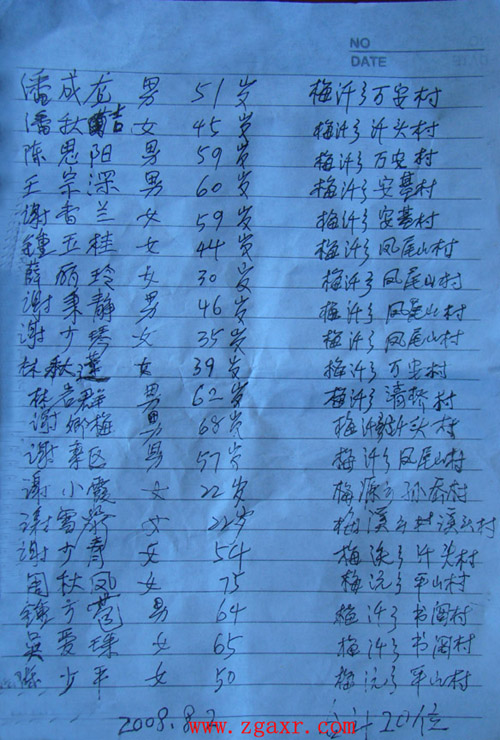 NO
DATE
潘成龙 男 51岁 梅汴乡万安村
潘秋 女 45岁 梅汴乡汴头村
陈思阳 男 59岁 梅汴乡万安村
王宗深 男 60岁 梅汴乡安基村
谢香兰 女 59岁 梅汴乡安基村
钟玉桂 女 44岁 梅汴乡凤尾山村
薛丽玲 女 30岁 梅汴乡凤尾山村
谢秉静 男 46岁 梅汴乡凤尾山村
谢少琴 女 35岁 梅汴乡凤尾山村
林秋莲 女 39岁 梅汴乡万安村
林 群 男 62岁 梅汴乡清桥村
谢 梅 男 68岁 梅汴 头村
谢 区 男 57岁 梅汴乡凤尾山村
谢小霞 女 22岁 梅 乡 村
谢雪 女 22岁 梅溪乡 溪头村
谢少青 女 54 梅 乡汴头村
周秋凤 女 75 梅 乡平山村
钟方 男 64 梅汴乡书阁村
吴爱珠 女 65 梅汴乡书阁村
少平 女 50 梅 乡平山村
2008.8.2 合计20位
www.zgaxr.com